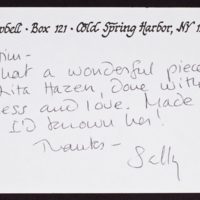 pbell · Box 121 · Cold Spring Harbor, NY 1
Jim -
hat a wonderful piece
Rita Hazen, done with
ess and love. Made
I'd known her!
Thanks -
Sally